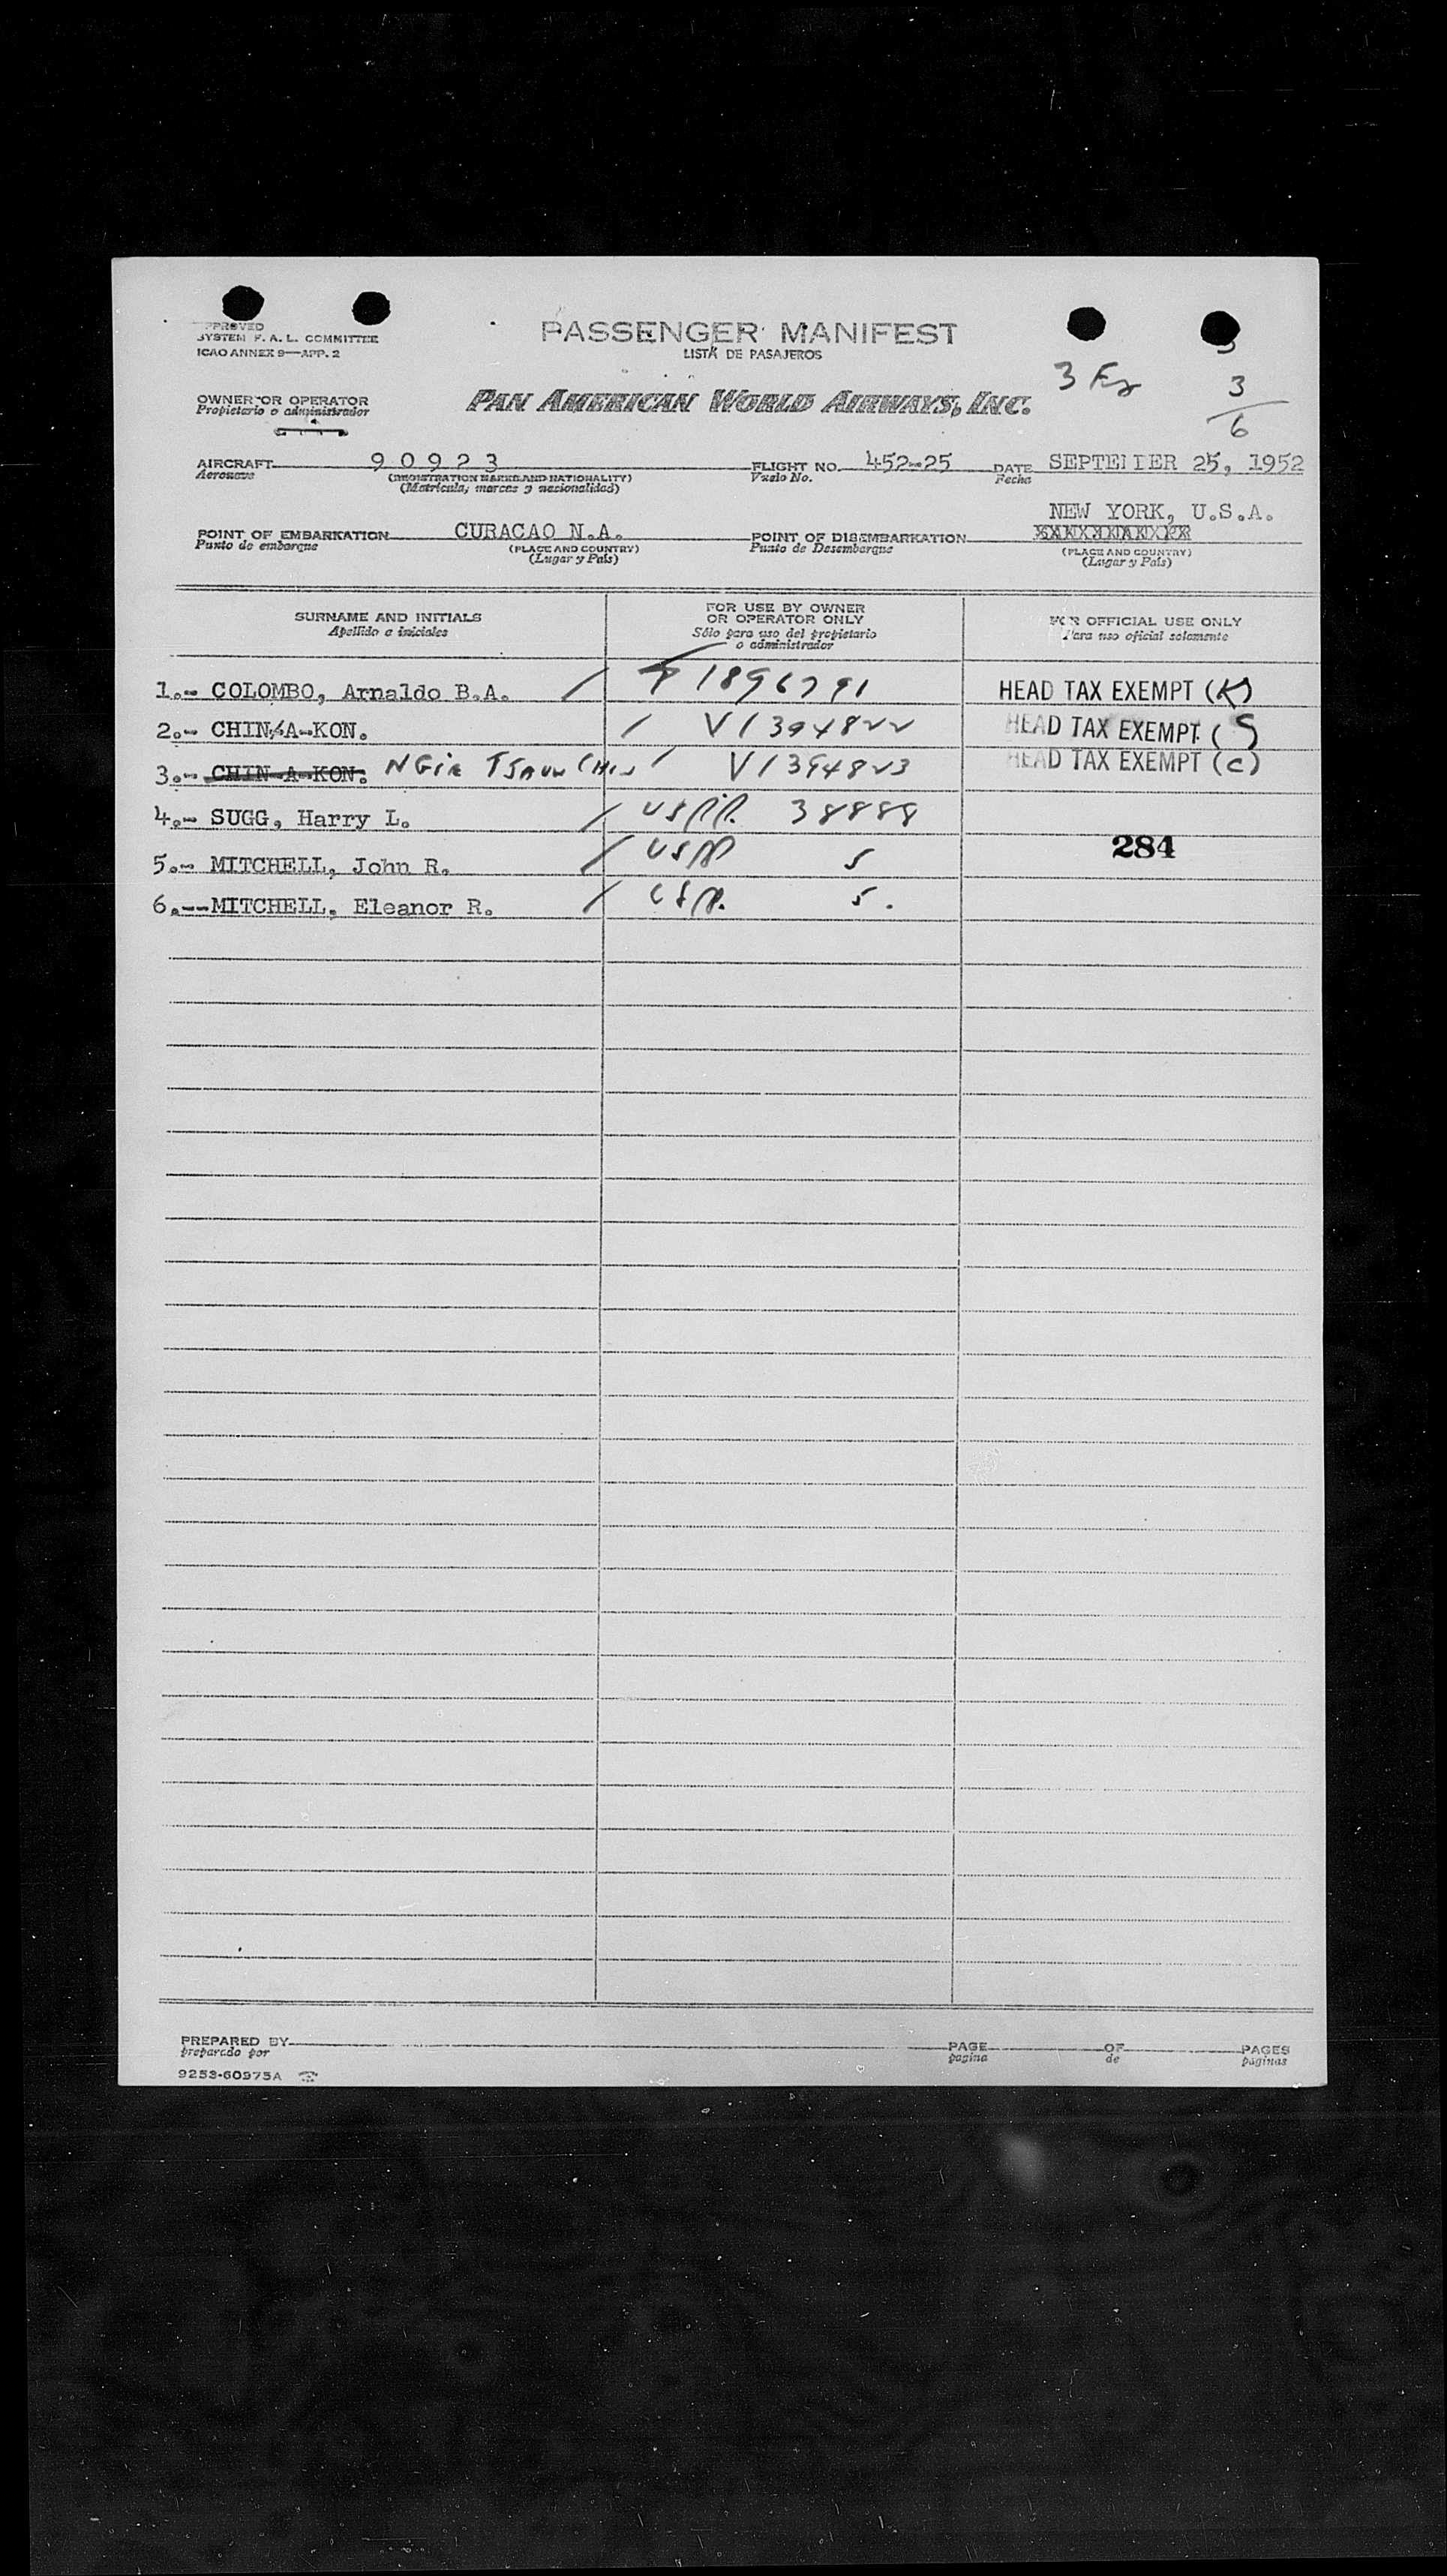 APPROVED
SYSTEM F. A. L. COMMITTEE
ICAO ANNEX 9—APP. 2
PASSENGER MANIFEST
LISTA DE PASAJEROS
3
3
3
6
OWNER OR OPERATOR
Propietario o administrador
PAN AMERICAN WORLD AIRWAYS, INC.
AIRCRAFT 90923 FLIGHT NO. 452-25 DATE SEPTEMBER 25, 1952
Aeronave (REGISTRATION MARKS AND NATIONALITY) Vuelo No. Fecha
(Matricula, marcas y nacionalidad)
NEW YORK, U.S.A.
POINT OF EMBARKATION CURACAO N.A. POINT OF DISEMBARKATION
Punto de embarque (PLACE AND COUNTRY) Punto de Desembarque (PLACE AND COUNTRY)
(Lugar y País) (Lugar y País)
SURNAME AND INITIALS
Apellido e iniciales
FOR USE BY OWNER
OR OPERATOR ONLY
Sólo para uso del propietario
o administrador
FOR OFFICIAL USE ONLY
Para uso oficial solamente
1.- COLOMBO, Arnaldo B.A. 1896791 HEAD TAX EXEMPT (K)
2.- CHIN-A-KON. V1394822 HEAD TAX EXEMPT (S)
3.- CHIN-A-KON. V1394823 HEAD TAX EXEMPT (C)
4.- SUGG, Harry L. USPP. 38888
284
5.- MITCHELL, John R. USPP 5
6.--MITCHELL, Eleanor R. USPP. 5.
PREPARED BY PAGE OF PAGES
preparado por pagina de páginas
9253-60975A